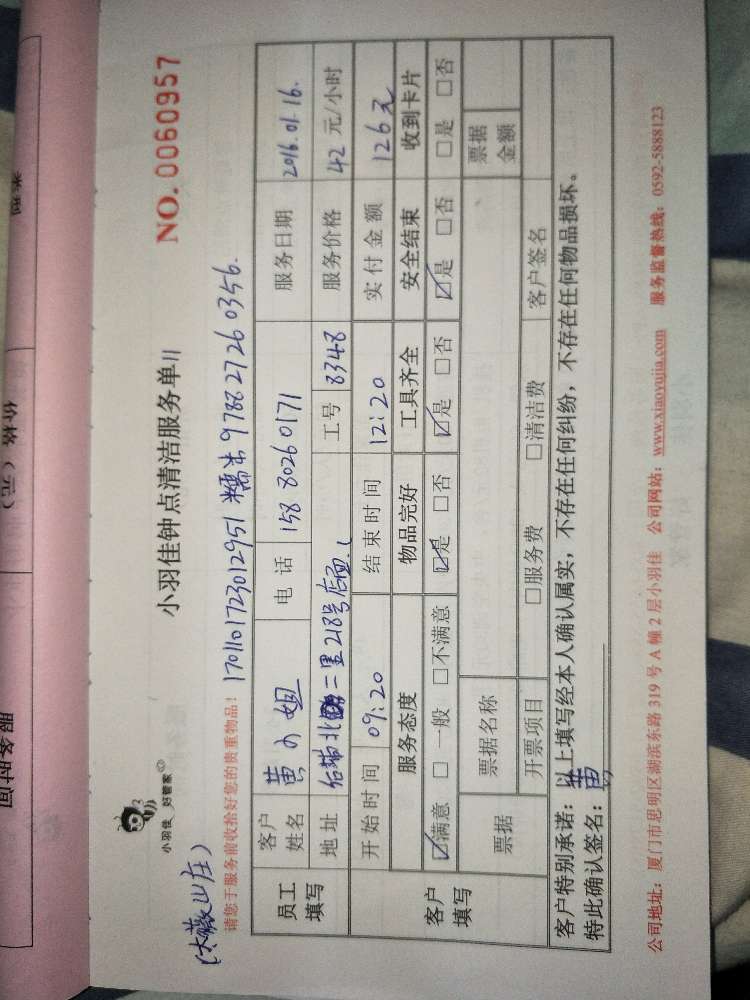 (大薇山庄)
小羽佳 好管家
小羽佳钟点清洁服务单II
NO.0060957
请您于服务前收拾好您的贵重物品!
1701101723012951 糯米 978827260356.
员工填写
客户姓名 黄小姐 电话 158 80260171 服务日期 2016.01.16.
地址 后埔北 二里218号店面 工号 8348 服务价格 42 元/小时
客户填写
开始时间 09:20 结束时间 12:20 实付金额 126元
服务态度 物品完好 工具齐全 安全结束 收到卡片
☑满意 □ 一般 □不满意 ☑是 □否 ☑是 □否 ☑是 □否 □是 □否
票据 票据名称 票据金额
开票项目 □服务费 □清洁费 客户签名
客户特别承诺:以上填写经本人确认属实,不存在任何纠纷,不存在任何物品损坏。
特此确认签名:黄
公司地址:厦门市思明区湖滨东路 319 号 A 幢 2 层小羽佳 公司网站:www.xiaoyujia.com 服务监督热线:0592-5888123
类别
价格(元)
服务时间